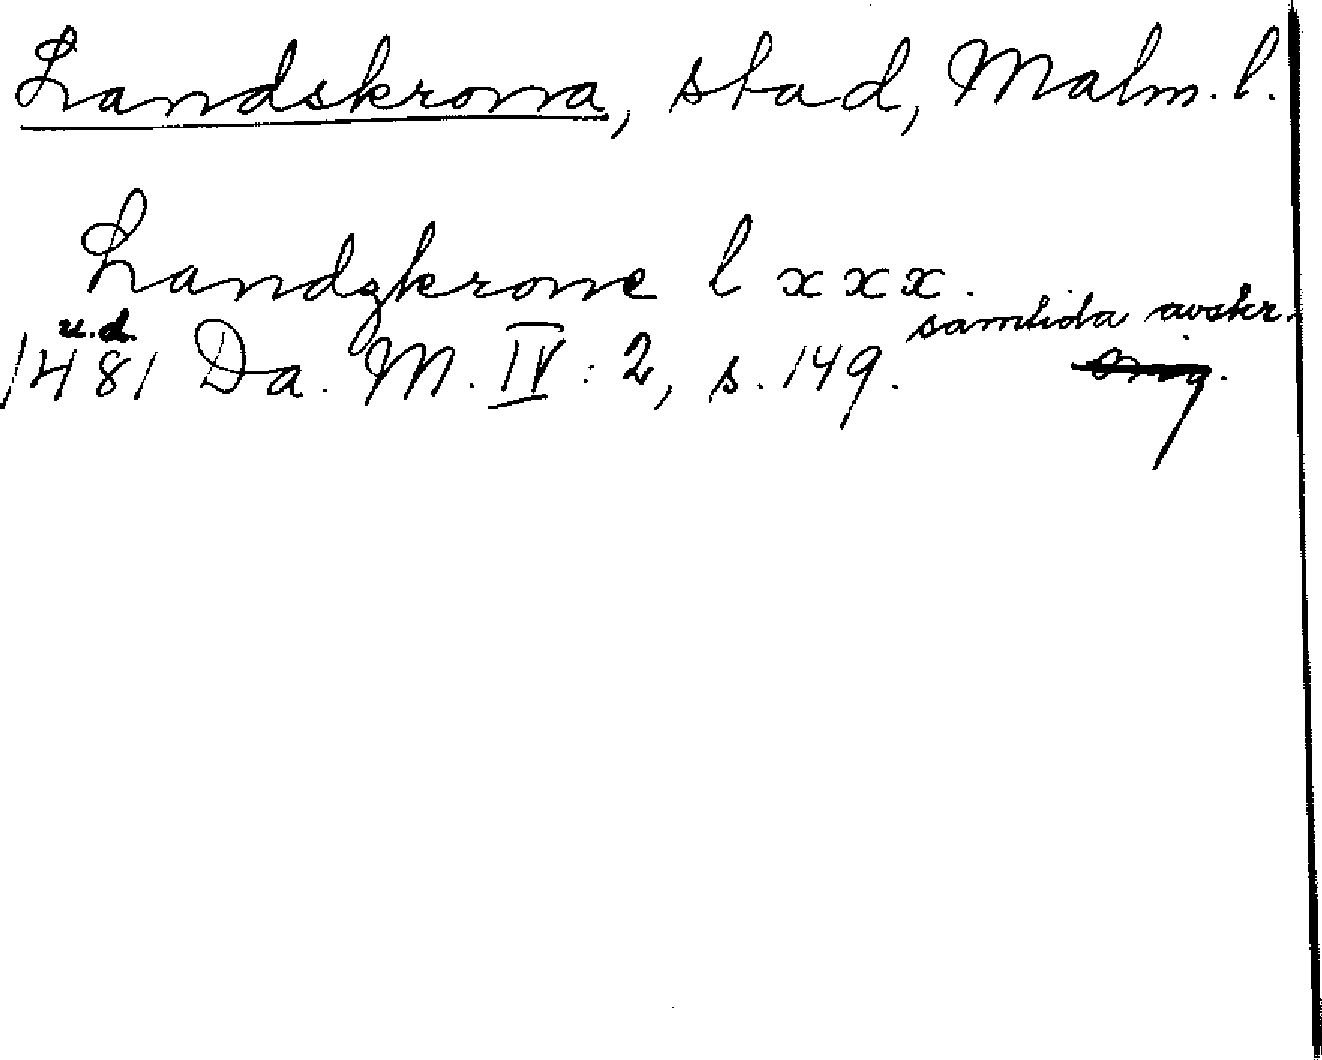 Landskrona, stad, Malm. l.
Landzkrone l xxx.
u.d. samtida avskr.
1481 Da. M. IV: 2, s. 149. orig.